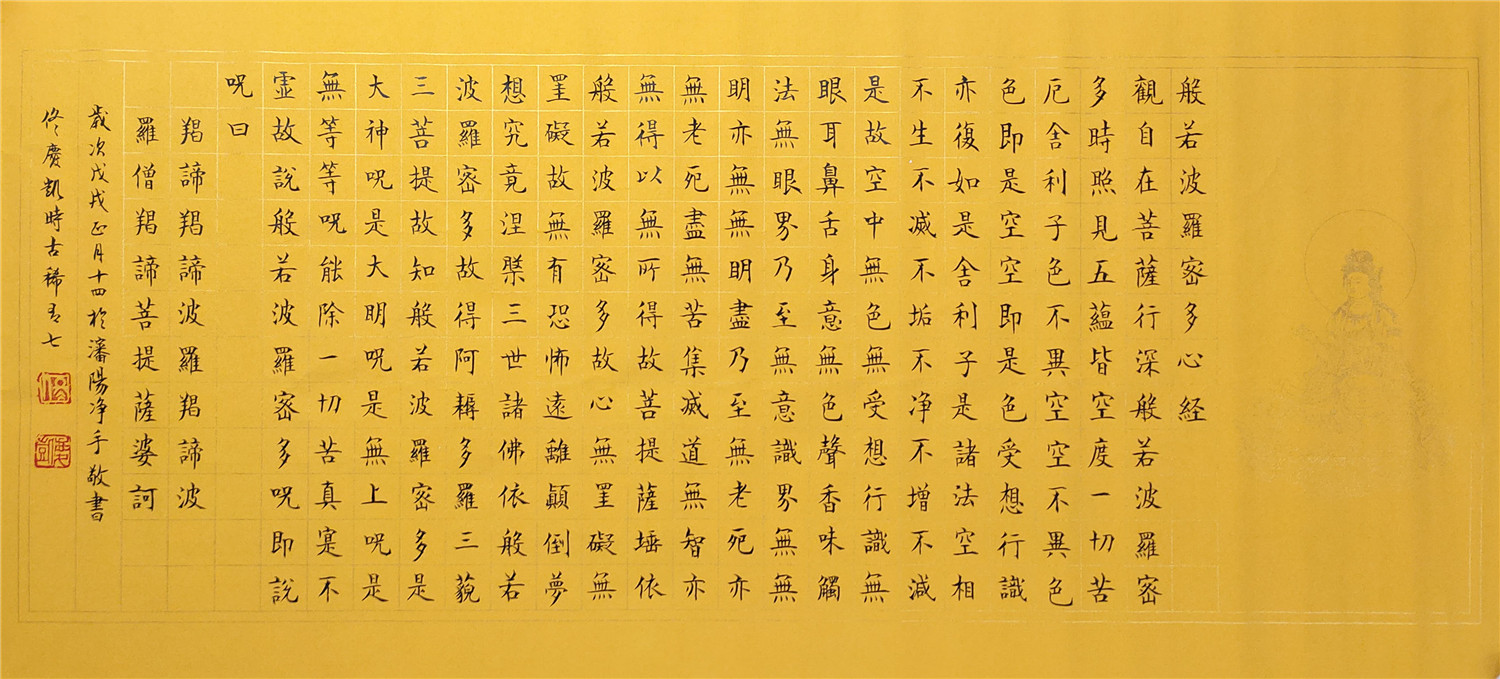 般若波羅密多心経
觀自在菩薩行深般若波羅密
多時照見五蘊皆空度一切苦
厄舍利子色不異空空不異色
色即是空空即是色受想行識
亦復如是舍利子是諸法空相
不生不滅不垢不净不增不減
是故空中無色無受想行識無
眼耳鼻舌身意無色聲香味觸
法無眼界乃至無意識界無無
明亦無無明盡乃至無老死亦
無老死盡無苦集滅道無智亦
無得以無所得故菩提薩埵依
般若波羅密多故心無罣礙無
罣礙故無有恐怖遠離顛倒夢
想究竟涅槃三世諸佛依般若
波羅密多故得阿耨多羅三藐
三菩提故知般若波羅密多是
大神呪是大明呪是無上呪是
無等等呪能除一切苦真寔不
虛故說般若波羅密多呪即說
呪曰
羯諦羯諦波羅羯諦波
羅僧羯諦菩提薩婆訶
歲次戊戌正月十四於瀋陽净手敬書
佟慶凱時古稀有七